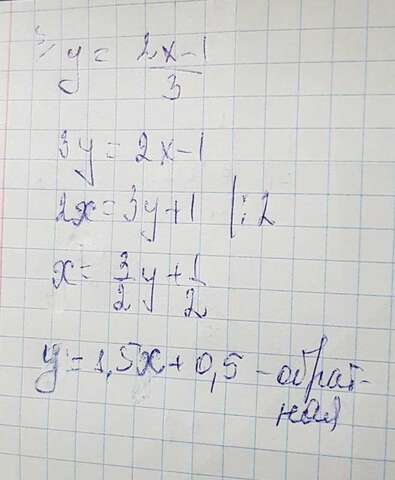 3) y = 2x-1/3
3y = 2x-1
2x = 3y+1 |:2
x = 3/2 y + 1/2
y = 1,5x + 0,5 - обрат-
ная